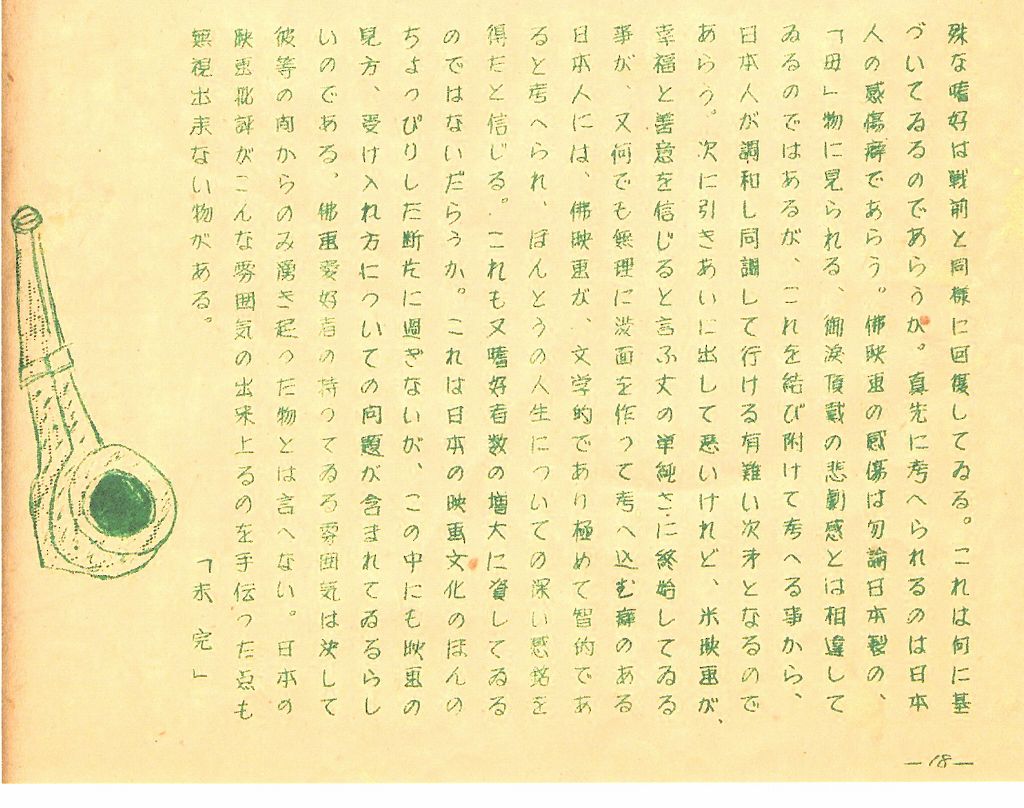 殊な嗜好は戦前と同様に回復してゐる。これは何に基
づいてゐるのであらうか。真先に考へられるのは日本
人の感傷癖であらう。佛映画の感傷は勿論日本製の、
「母」物に見られる、御涙頂戴の悲劇感とは相違して
ゐるのではあるが、これを結び附けて考へる事から、
日本人が調和し同調して行ける有難い次才となるので
あらう。次に引きあいに出して悪いけれど、米映画が、
幸福と善意を信じると言ふ丈の単純さに終始してゐる
事が、又何でも無理に渋面を作って考へ込む癖のある
日本人には、佛映画が、文学的であり極めて智的であ
ると考へられ、ほんとうの人生についての深い感銘を
得たと信じる。これも又嗜好者数の増大に資してゐる
のではないだらうか。これは日本の映画文化のほんの
ちよっぴりした断片に過ぎないが、この中にも映画の
見方、受け入れ方についての問題が含まれてゐるらし
いのである。佛画愛好者の持つてゐる雰囲気は決して
彼等の内からのみ湧き起つた物とは言へない。日本の
映画批評がこんな雰囲気の出来上るのを手伝った点も
無視出来ない物がある。
「未完」
—18—